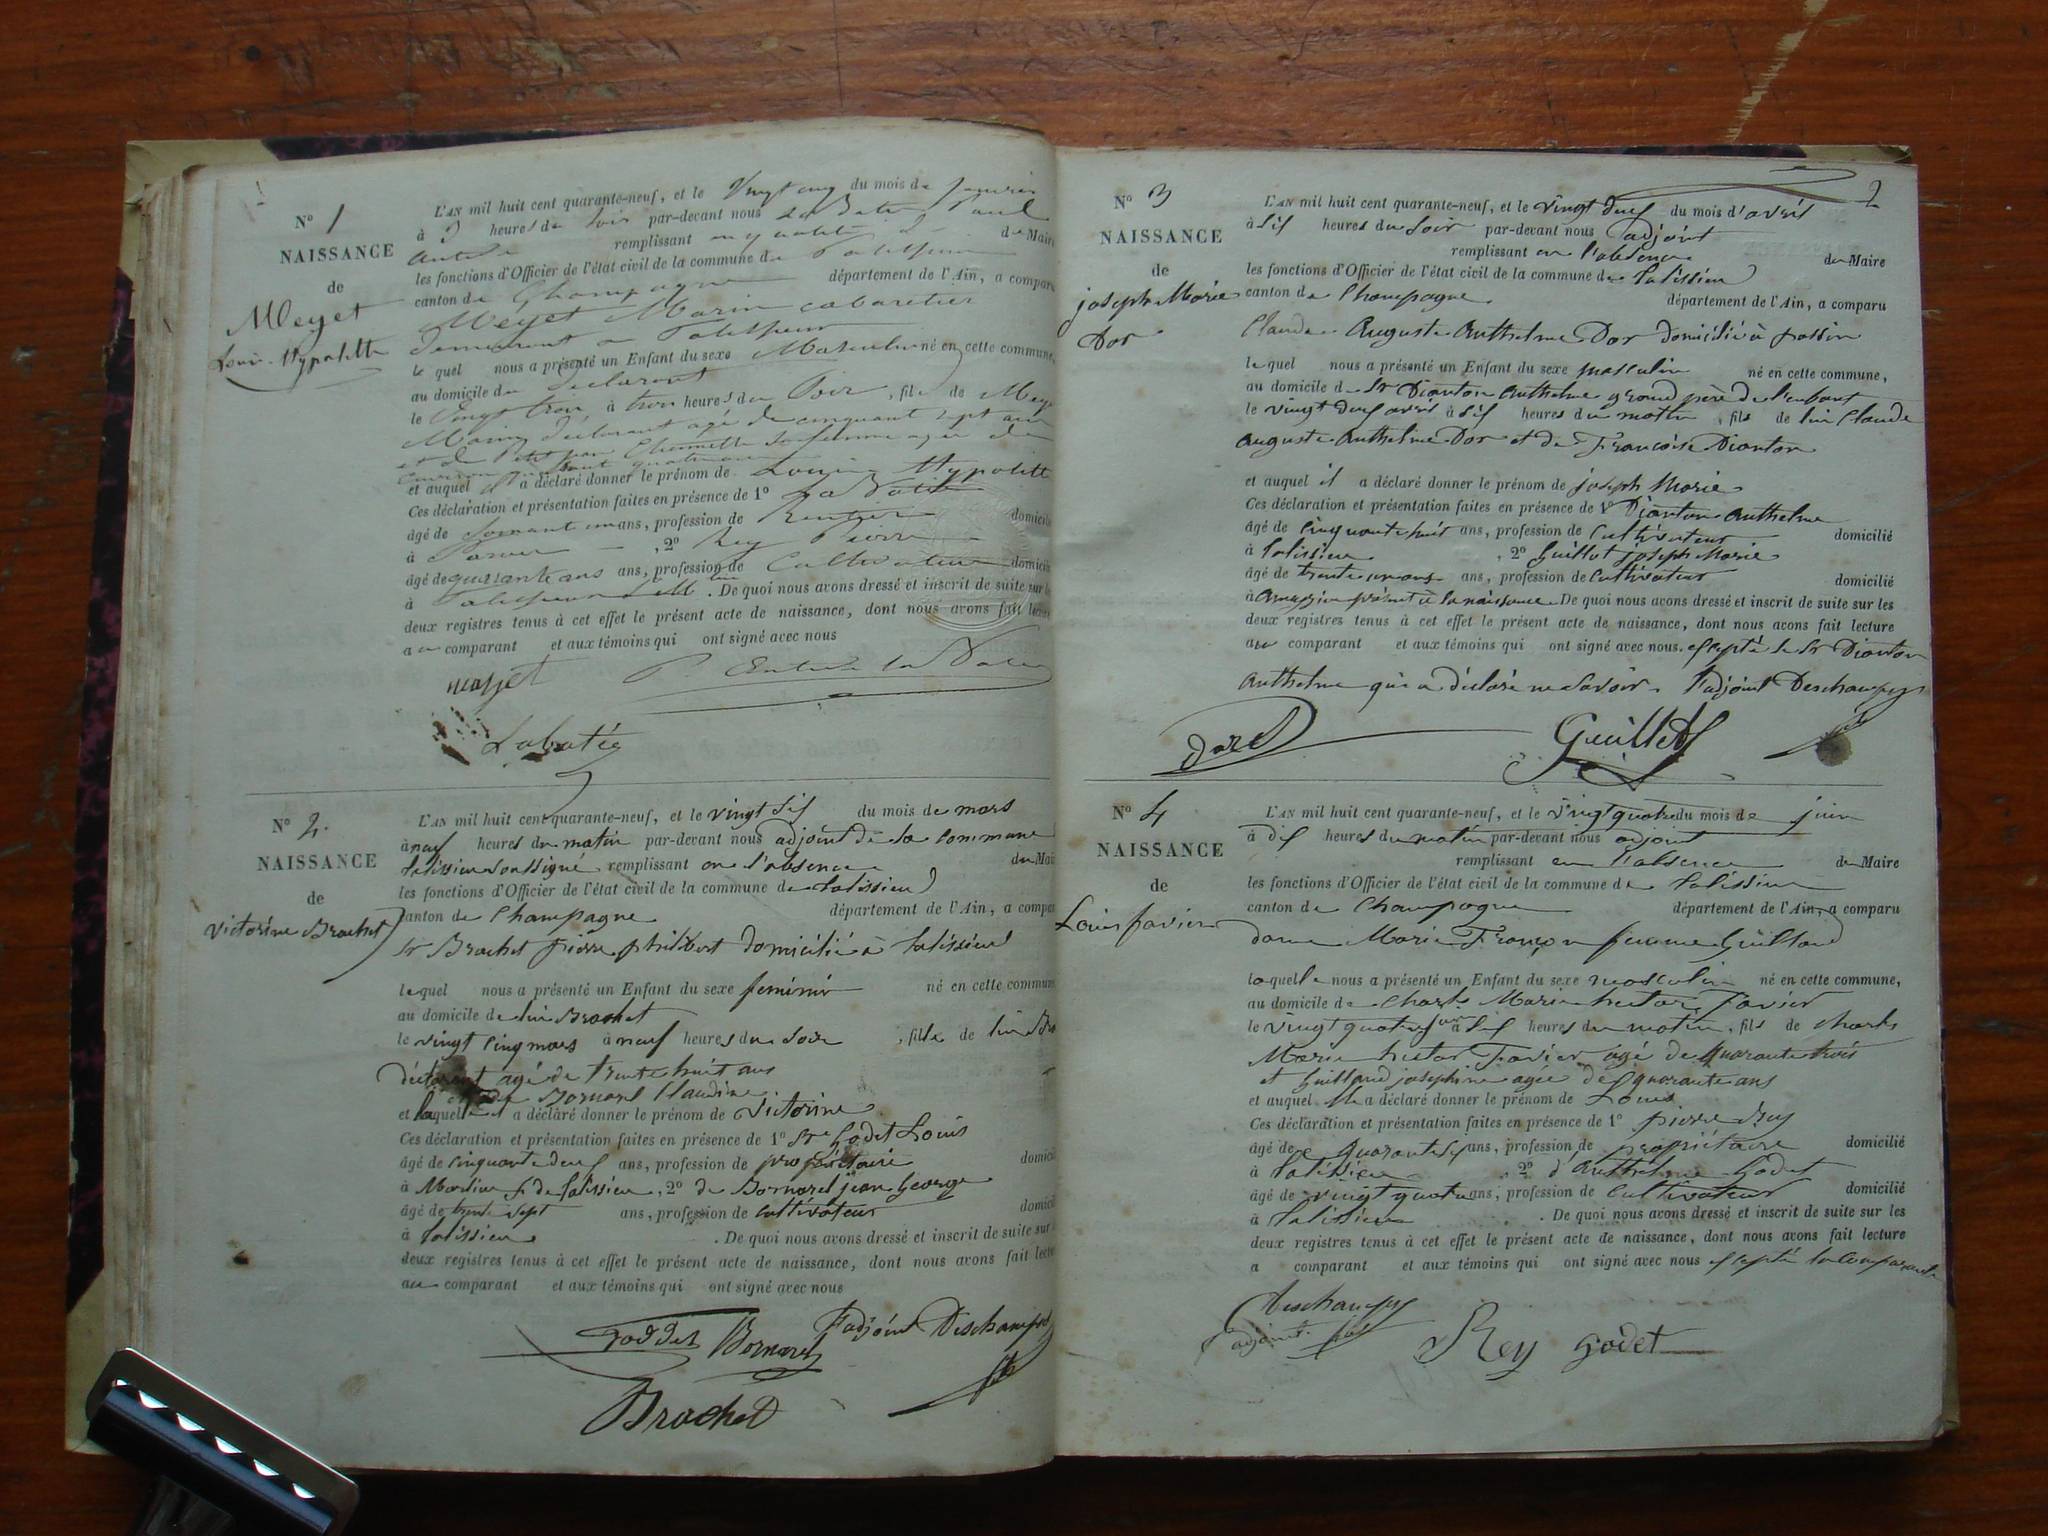 N° 1
NAISSANCE
de
Meyet
Louis Hypolitte
L'AN mil huit cent quarante-neuf, et le Vingt cinq du mois de Janvier
à 3 heures du soir par-devant nous Paul
remplissant en qualité de Maire
les fonctions d'Officier de l'état civil de la commune de
canton de Champagne département de l'Ain, a comparu
Meyet Marin cabaretier
demeurant a
le quel nous a présenté un Enfant du sexe Masculin né en cette commune,
au domicile du déclarant
le Vingt trois à trois heures du Soir, fils de Meyet
Marin déclarant agé de cinquant sept ans
et de sa femme agée de
et auquel il a déclaré donner le prénom de Louis Hypolitte
Ces déclaration et présentation faites en présence de 1°
âgé de ans, profession de Rentier domicilié
à , 2° Rey Pierre
âgé de quarante ans ans, profession de Cultivateur domicilié
à . De quoi nous avons dressé et inscrit de suite sur les
deux registres tenus à cet effet le présent acte de naissance, dont nous avons fait lecture
au comparant et aux témoins qui ont signé avec nous
Labatie
N° 2.
NAISSANCE
de
Victorine Brachet
L'AN mil huit cent quarante-neuf, et le vingt six du mois de mars
à neuf heures du matin par-devant nous adjoint de la commune
talissieu soussigné remplissant en l'absence du Maire
les fonctions d'Officier de l'état civil de la commune de talissieu
canton de Champagne département de l'Ain, a comparu
Sr Brachet pierre philibert domicilié à talissieu
le quel nous a présenté un Enfant du sexe feminin né en cette commune
au domicile de lui Brachet
le vingt cinq mars à neuf heures du soir, fille de lui
déclarant agé de trente huit ans
et de Bornarel Claudine
et laquelle il a déclaré donner le prénom de Victorine
Ces déclaration et présentation faites en présence de 1° Sr Godet Louis
âgé de cinquante deux ans, profession de propriétaire domicilié
à de talissieu, 2° de Bornarel jean George
âgé de trente sept ans, profession de cultivateur domicilié
à talissieu . De quoi nous avons dressé et inscrit de suite sur
deux registres tenus à cet effet le présent acte de naissance, dont nous avons fait lecture
au comparant et aux témoins qui ont signé avec nous
Goddet Bornarel l'adjoint Deschamps
Brachet
2
N° 3
NAISSANCE
de
joseph Marie
Dor
L'AN mil huit cent quarante-neuf, et le vingt deux du mois d'avril
à six heures du soir par-devant nous adjoint
remplissant en l'absence du Maire
les fonctions d'Officier de l'état civil de la commune de talissieu
canton de Champagne département de l'Ain, a comparu
Claude Auguste Anthelme Dor domicilié à passin
le quel nous a présenté un Enfant du sexe masculin né en cette commune,
au domicile de Sr Dianton Anthelme grand père de l'enfant
le vingt deux avril à six heures du matin, fils de lui Claude
Auguste Anthelme Dor et de Françoise Dianton
et auquel il a déclaré donner le prénom de joseph Marie
Ces déclaration et présentation faites en présence de 1° Dianton Anthelme
âgé de cinquante huit ans, profession de Cultivateur domicilié
à talissieu , 2° Guillot joseph Marie
âgé de trente un ans ans, profession de cultivateur domicilié
à présent à la naissance. De quoi nous avons dressé et inscrit de suite sur les
deux registres tenus à cet effet le présent acte de naissance, dont nous avons fait lecture
au comparant et aux témoins qui ont signé avec nous. excepté le Sr Dianton
Anthelme qui a déclaré ne savoir. l'adjoint Deschamps
N° 4
NAISSANCE
de
Louis favier
L'AN mil huit cent quarante-neuf, et le vingt quatre du mois de juin
à dix heures du matin par-devant nous adjoint
remplissant en l'absence du Maire
les fonctions d'Officier de l'état civil de la commune de talissieu
canton de Champagne département de l'Ain, a comparu
dame Marie Françon femme Guilland
laquelle nous a présenté un Enfant du sexe masculin né en cette commune,
au domicile de Charles Marie hector favier
le vingt quatre juin à six heures du matin, fils de charles
Marie hector Favier agé de quarante trois
et Guilland josephine agée de quarante ans
et auquel elle a déclaré donner le prénom de Louis
Ces déclaration et présentation faites en présence de 1° pierre Rey
âgé de quarante six ans, profession de propriétaire domicilié
à talissieu , 2° d'Anthelme Godet
âgé de vingt quatre ans, profession de cultivateur domicilié
à talissieu . De quoi nous avons dressé et inscrit de suite sur les
deux registres tenus à cet effet le présent acte de naissance, dont nous avons fait lecture
a comparant et aux témoins qui ont signé avec nous excepté la comparante
Deschamps
adjoint Rey Godet